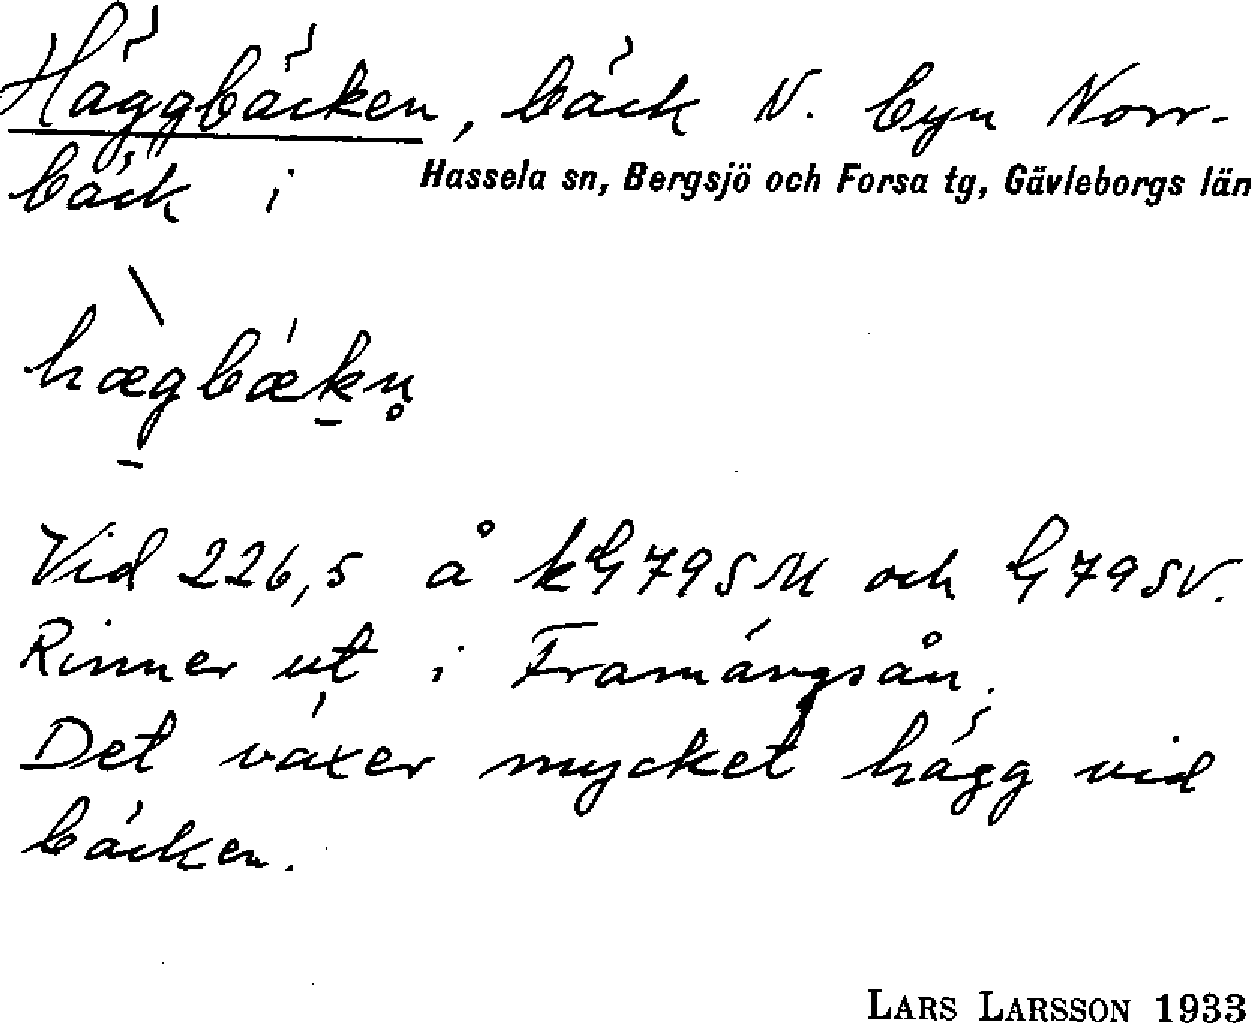 Häggbäcken, bäck N. byn Norr-
bäck i Hassela sn, Bergsjö och Forsa tg, Gävleborgs län
hægbækn̥
Vid 226,5 å kG79SM och G79SV.
Rinner ut i Framängsån.
Det växer mycket hägg vid
bäcken.
LARS LARSSON 1933